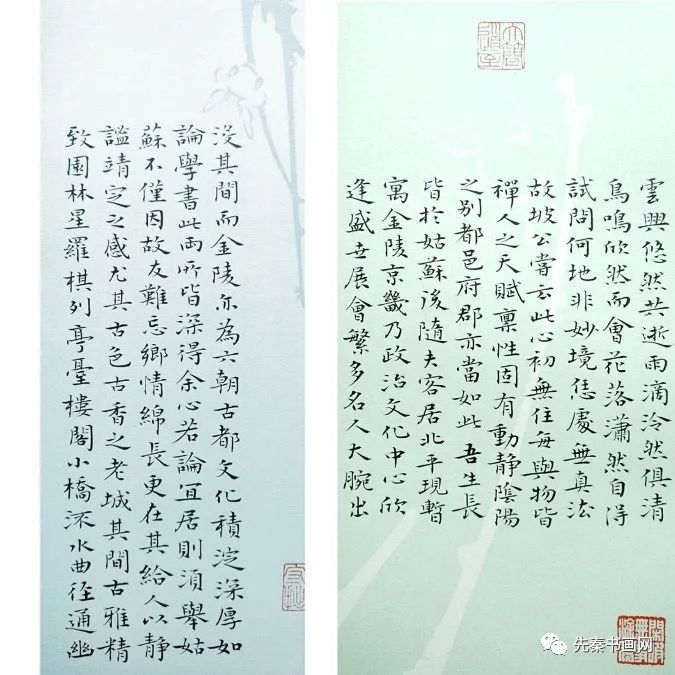 雲興悠然共逝雨滴泠然俱清
鳥鳴欣然而會花落瀟然自得
試問何地非妙境恁處無真法
故坡公嘗云此心初無住每與物皆
禪人之天賦稟性固有動靜陰陽
之别都邑府郡亦當如此吾生長
皆於姑蘇後隨夫客居北平現暫
寓金陵京畿乃政治文化中心欣
逢盛世展會繁多名人大腕出
沒其間而金陵亦為六朝古都文化積淀深厚如
論學書此兩所皆深得余心若論宜居則須舉姑
蘇不僅因故友難忘鄉情綿長更在其給人以靜
謐靖定之感尤其古色古香之老城其間古雅精
致園林星羅棋列亭臺樓閣小橋流水曲徑通幽
先秦书画网